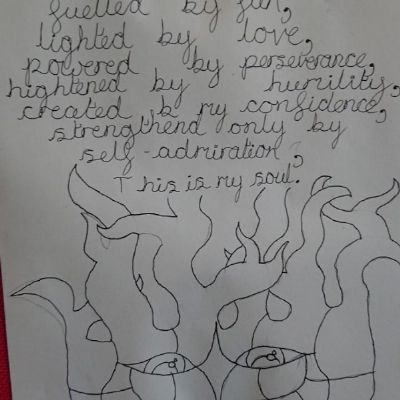 fuelled by fun,
lighted by love,
powered by perseverance,
hightened by humility,
created by my confidence,
strengthend only by
self-admiration,
This is my soul.